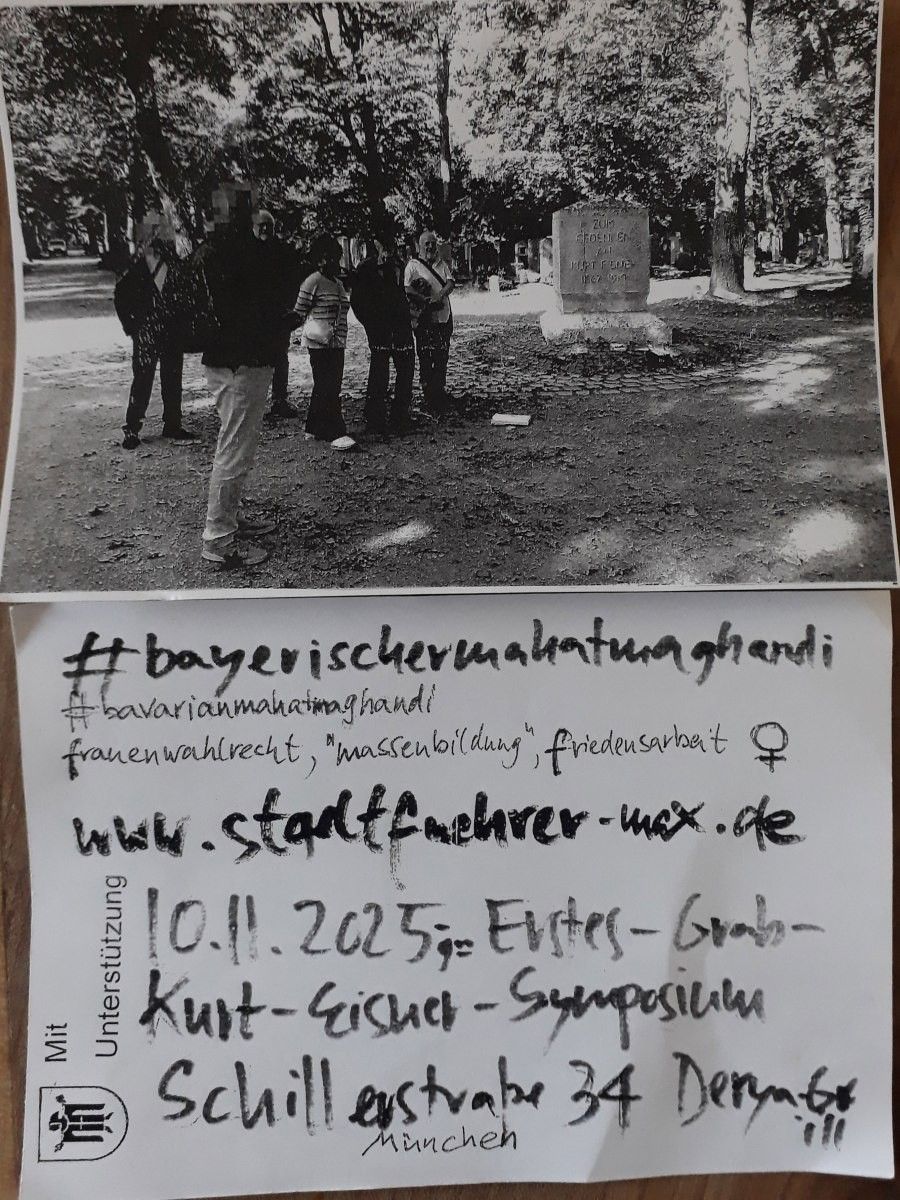 ZUM
GEDENKEN
AN
KURT EISNER
1867 1919
#bayerischermahatmaghandi
#bavarianmahatmaghandi
frauenwahlrecht, "massenbildung", friedensarbeit ♀
www.stadtfuehrer-max.de
Mit
Unterstützung
10.11.2025;= Erstes-Grab-
Kurt-Eisner-Symposium
Schillerstraße 34 Derya Gr
ill
München